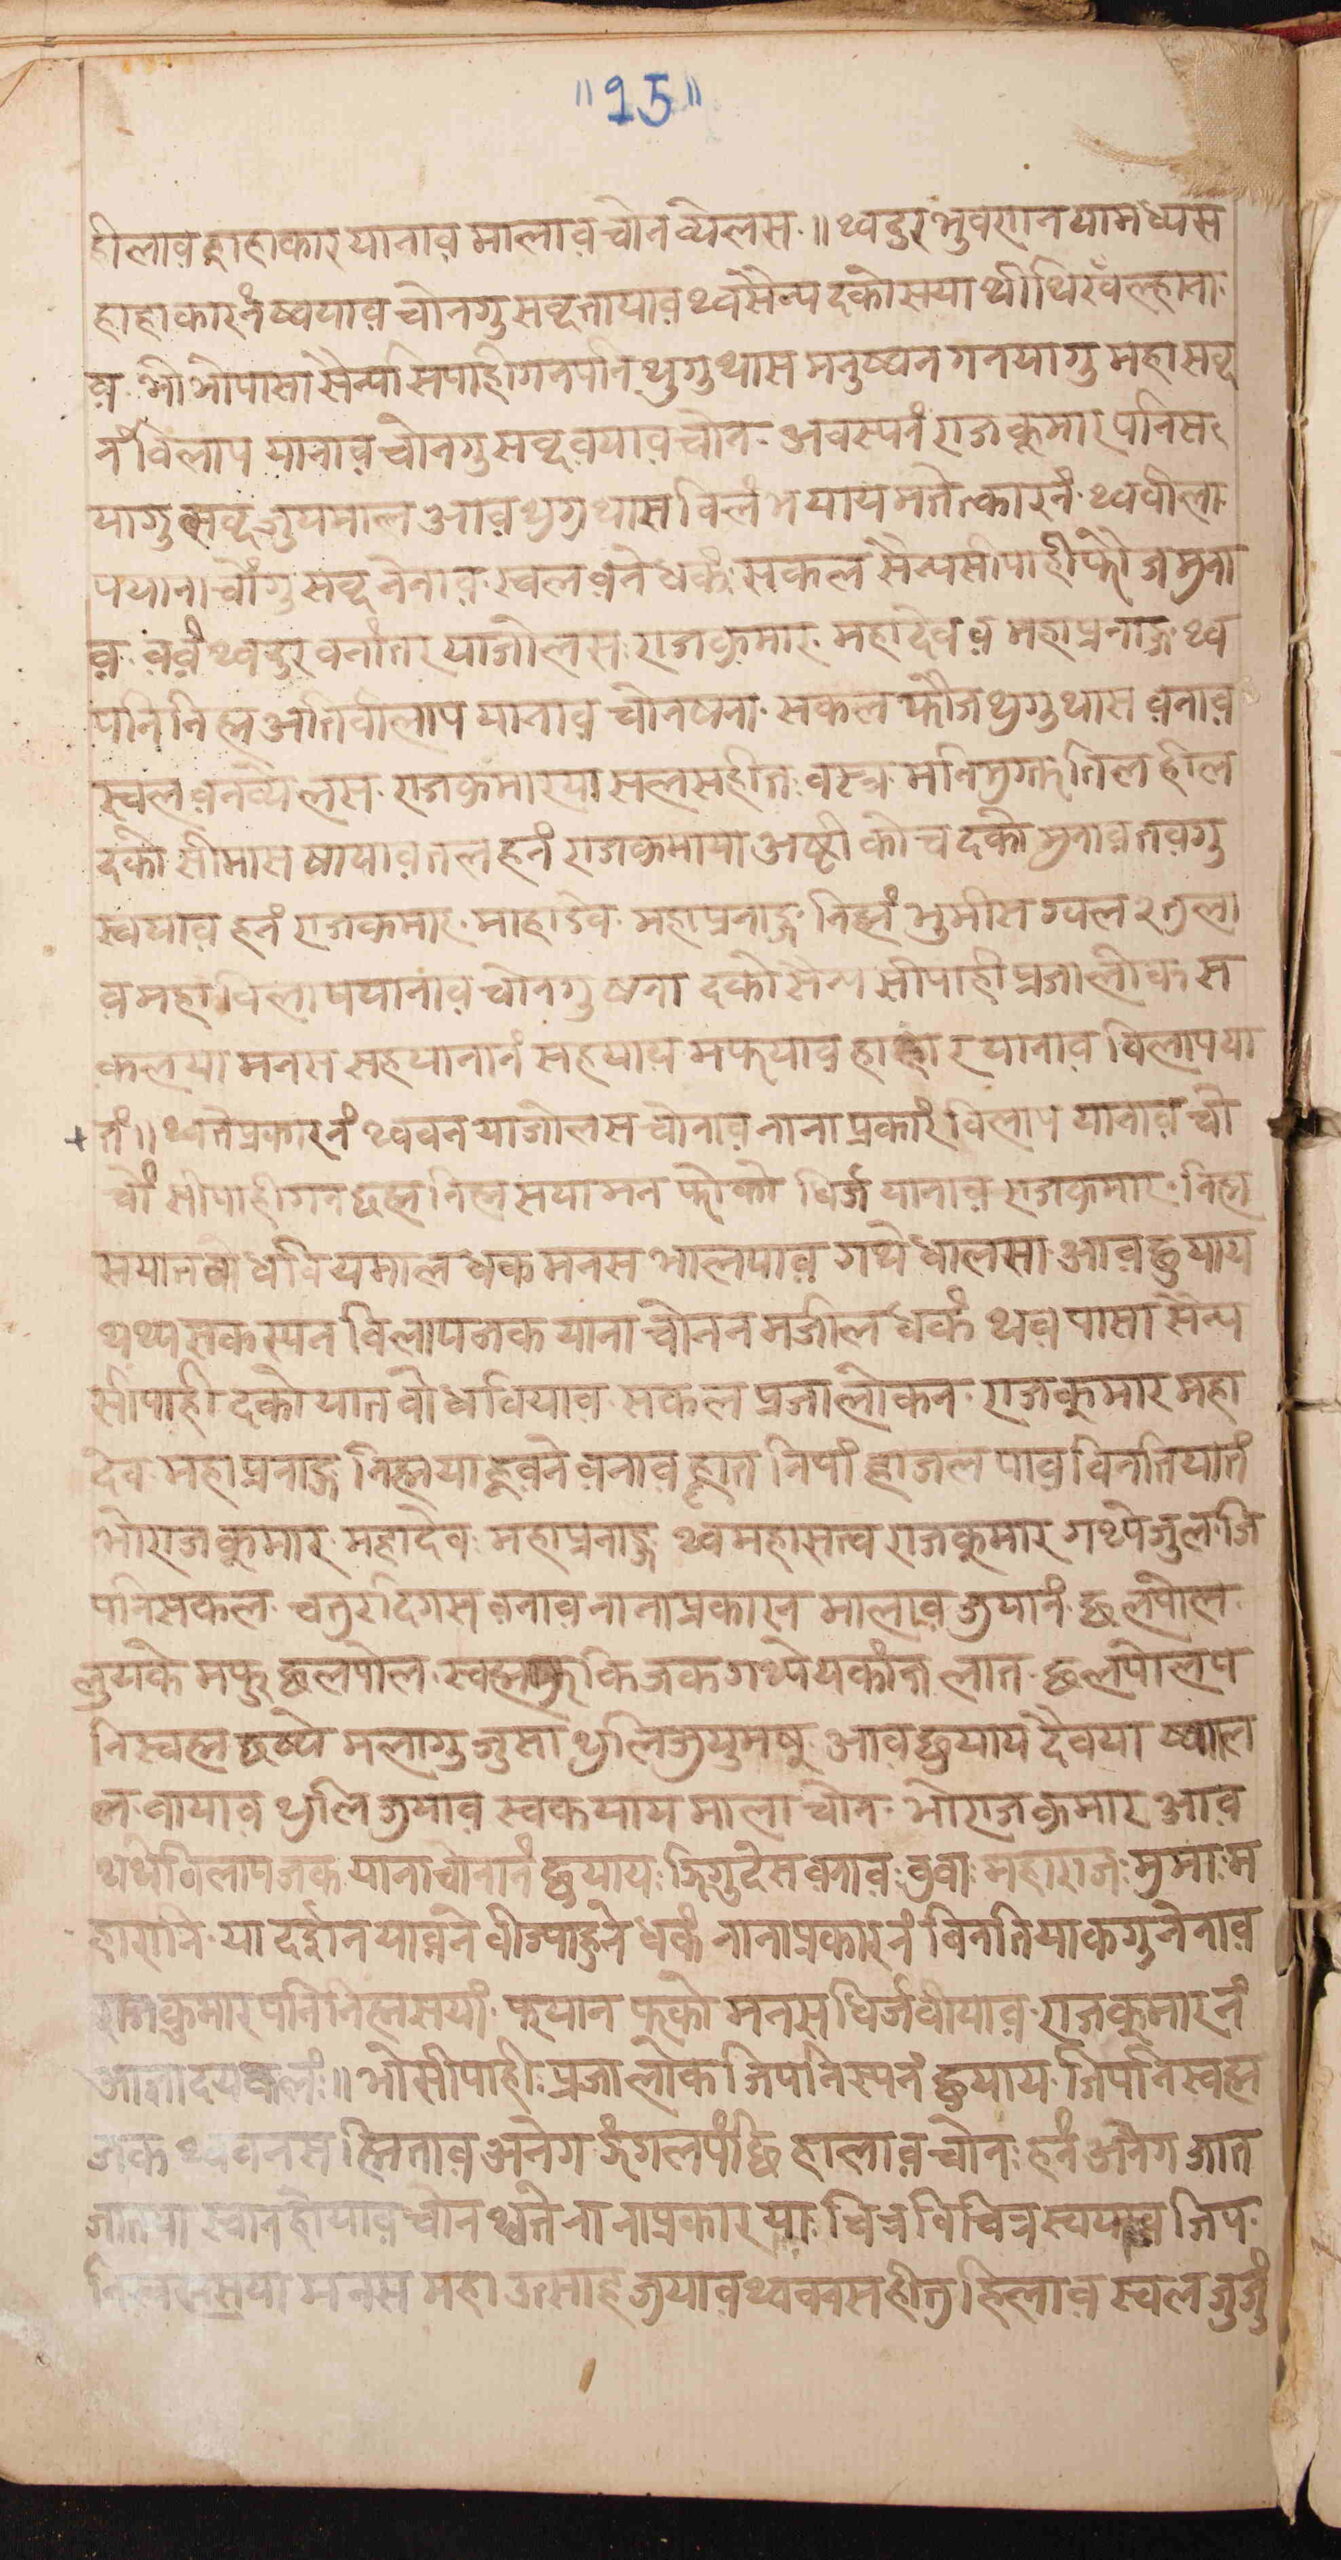 ॥ १५ ॥
हीलाव हाहाकार यानाव मालाव चोन व्यलस ॥ थ्व दुर भुवसान यामध्यस
हाहाकारनं ष्वयाव चोनगु सब्द तायाव थ्व सैन्य दकोसया थीथि रवँल्हाना
व भो भो पासा सैन्य सिपाहीगनपनि थुगु थास मनुष्यन गनयागु महा सब्द
नं विलाप यानाव चोनगु सब्द वयाव चोन अवस्यनं राजकुमारपनिस
यागु सब्द जुयमाल आव थुगु थास विलंभ यायमते कारनं थ्व वीला
प याना चोंगु सब्द नेनाव स्वल वने धकं सकल सैन्य सीपाही फौज मुना
व वंवं थ्व दुर वनांतर याजोलस राजकुमार महादेव व महाप्रनाद थ्व
पनि निह्म अतिवीलाप यानाव चोन षना सकल फौज थुगु थास वनाव
स्वल वन व्यलस राजकुमारया सलसहीत वस्त्र मनिमुगत तिलहील
दको सीमास षायाव तल हनं राजकुमाया अष्टी कोच दको मुनाव तवगु
स्वयाव हनं राजकुमार माहादेव महाप्रनाद निह्मं भुमीस ग्वल २ तुला
व महाविलाप यानाव चोनगु षना दको सैन्य सीपाही प्रजालोक स
कलया मनस सहयानानं सहयाय मफयाव हाहार यानाव विलाप या
तं ॥ थ्वते प्रकारनं थ्व वनयाजोलस चोनाव नाना प्रकारं विलाप यानाव चों
चों सीपाहीगन छह्म निह्मसया मन फोको धिर्ज यानाव राजकुमार निह्म
सयात बोध वियमाल धक मनस भालपाव गथे धालसा आव छुयाय
थथ्य सकस्यन विलाप जक याना चोनन मजील धकं थव पासा सैन्य
सीपाही दकोयात बोध वियाव सकल प्रजालोकन राजकुमार महा
देव महाप्रनाद निह्मया ह्नवने वनाव ह्लात निपां ह्लाजलपाव विनतियातं
भो राजकुमार महादेव महाप्रनाद थ्व महासत्व राजकुमार गथ्ये जुल जि
पनि सकल चतुरदिगस वनाव नाना प्रकारन मालाव जुयानं छलपोल
लुयके मफु छलपोल स्वह्म कि जक गथ्ये यकांत लात छलपोलप
नि स्वह्म छथ्ये मलागु जुसा थुलि जुयुमषु आव छुयाय दैवया ष्वाल
ल वायाव थुलि जुयाव स्वकयाय माला चोन भो राजकुमार आव
थथे विलाप जक याना चोनानं छुयाय जिगु देस वनाव वुवा महाराज मुमा म
हारानि या दर्शन यावने वीज्याहुने धकं नानाप्रकारनं विनतियाकगु नेनाव
राजकुमारपनि निह्मसयां फयान फको मनस धिर्ज वीयाव राजकुमारनं
आज्ञा दयकलं ॥ भो सीपाही प्रजालोक जिपनिस्यनं छुयाय जिपनि स्वह्म
जक थ्व वनस ह्मितावं अनेग जंगल पंछि हालाव चोन हनं अनेग जात
जातया स्वान होयाव चोन थ्वते नानाप्रकारया चित्र विचित्र स्वयाव जिप
नि स्वह्मसया मनस महा उसाह जुयाव थ्व वनस हीतु हिलाव स्वल जुजुं